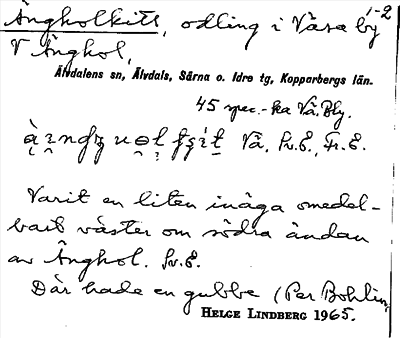 Ängholkitt, odling i Våsa by 1-2
V Änghol,
Älvdalens sn, Älvdals, Särna o. Idre tg, Kopparbergs län.
45 spec.-ka Vå. By.
Vå, Sv.E., Fr.E.
Varit en liten inäga omedel-
bart väster om södra ändan
av Änghol. Sv.E.
Där hade en gubbe (Per Bohlin,
HELGE LINDBERG 1965.